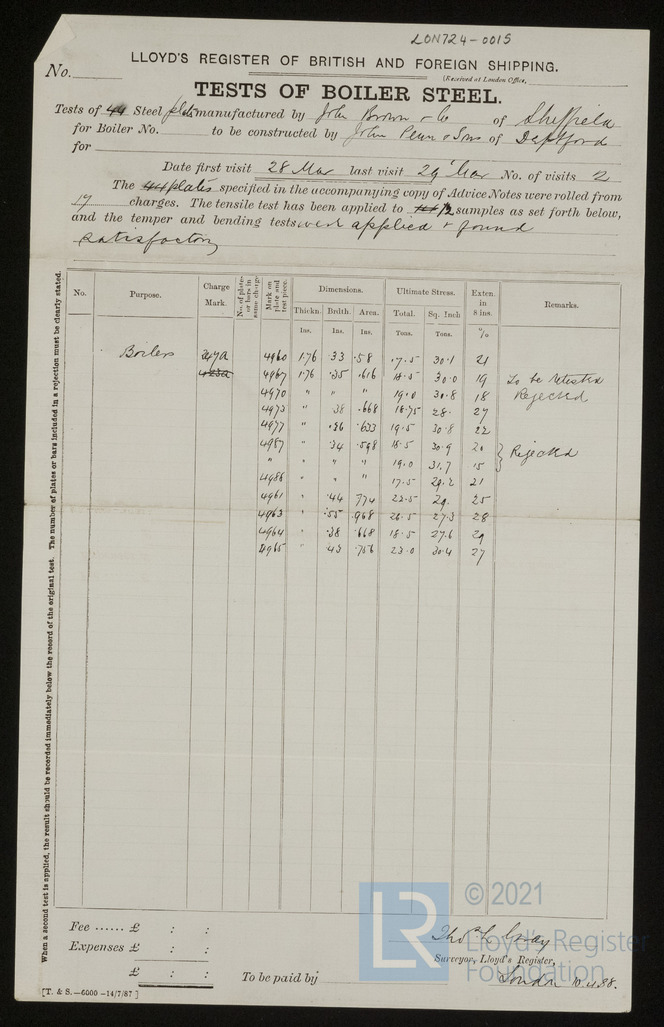 LON724-0015
LLOYD'S REGISTER OF BRITISH AND FOREIGN SHIPPING.
No.
(Received at London Office,
TESTS OF BOILER STEEL.
Tests of 44 Steel plates manufactured by John Brown & Co of Sheffield
for Boiler No. to be constructed by John Penn & Sons of Deptford
for
Date first visit 28 Mar last visit 29 Mar No. of visits 2
The plates specified in the accompanying copy of Advice Notes were rolled from
17 charges. The tensile test has been applied to 12 samples as set forth below,
and the temper and bending tests were applied & found
satisfactory
No. Purpose. Charge Mark. No. of plates or bars in same charge Mark on plate and test piece. Dimensions. Ultimate Stress. Exten. in 8 ins. Remarks.
Thickn. Brdth. Area. Total. Sq. Inch
Ins. Ins. Ins. Tons. Tons. %
Boilers 4960 1.76 .33 .58 17.5 30.1 21
4967 1.76 .35 .616 18.5 30.0 19 To be retested
4970 " " " 19.0 30.8 18 Rejected
4973 " .38 .668 18.75 28. 27
4977 " .36 .633 19.5 30.8 22
4987 " .34 .598 18.5 30.9 20 Rejected
" " " " 19.0 31.7 15
4988 " " " 17.5 29.2 21
4961 " .44 .774 22.5 29. 25
4963 " .55 .968 26.5 27.3 28
4964 " .38 .668 18.5 27.6 29
4965 " .43 .756 23.0 30.4 27
When a second test is applied, the result should be recorded immediately below the record of the original test. The number of plates or bars included in a rejection must be clearly stated.
Fee ...... £ : :
Expenses £ : :
£ : :
To be paid by
Thos. Gray
Surveyor, Lloyd's Register,
London 10.4.88.
[T. & S.—6000—14/7/87]
LR
© 2021
Lloyd's Register
Foundation